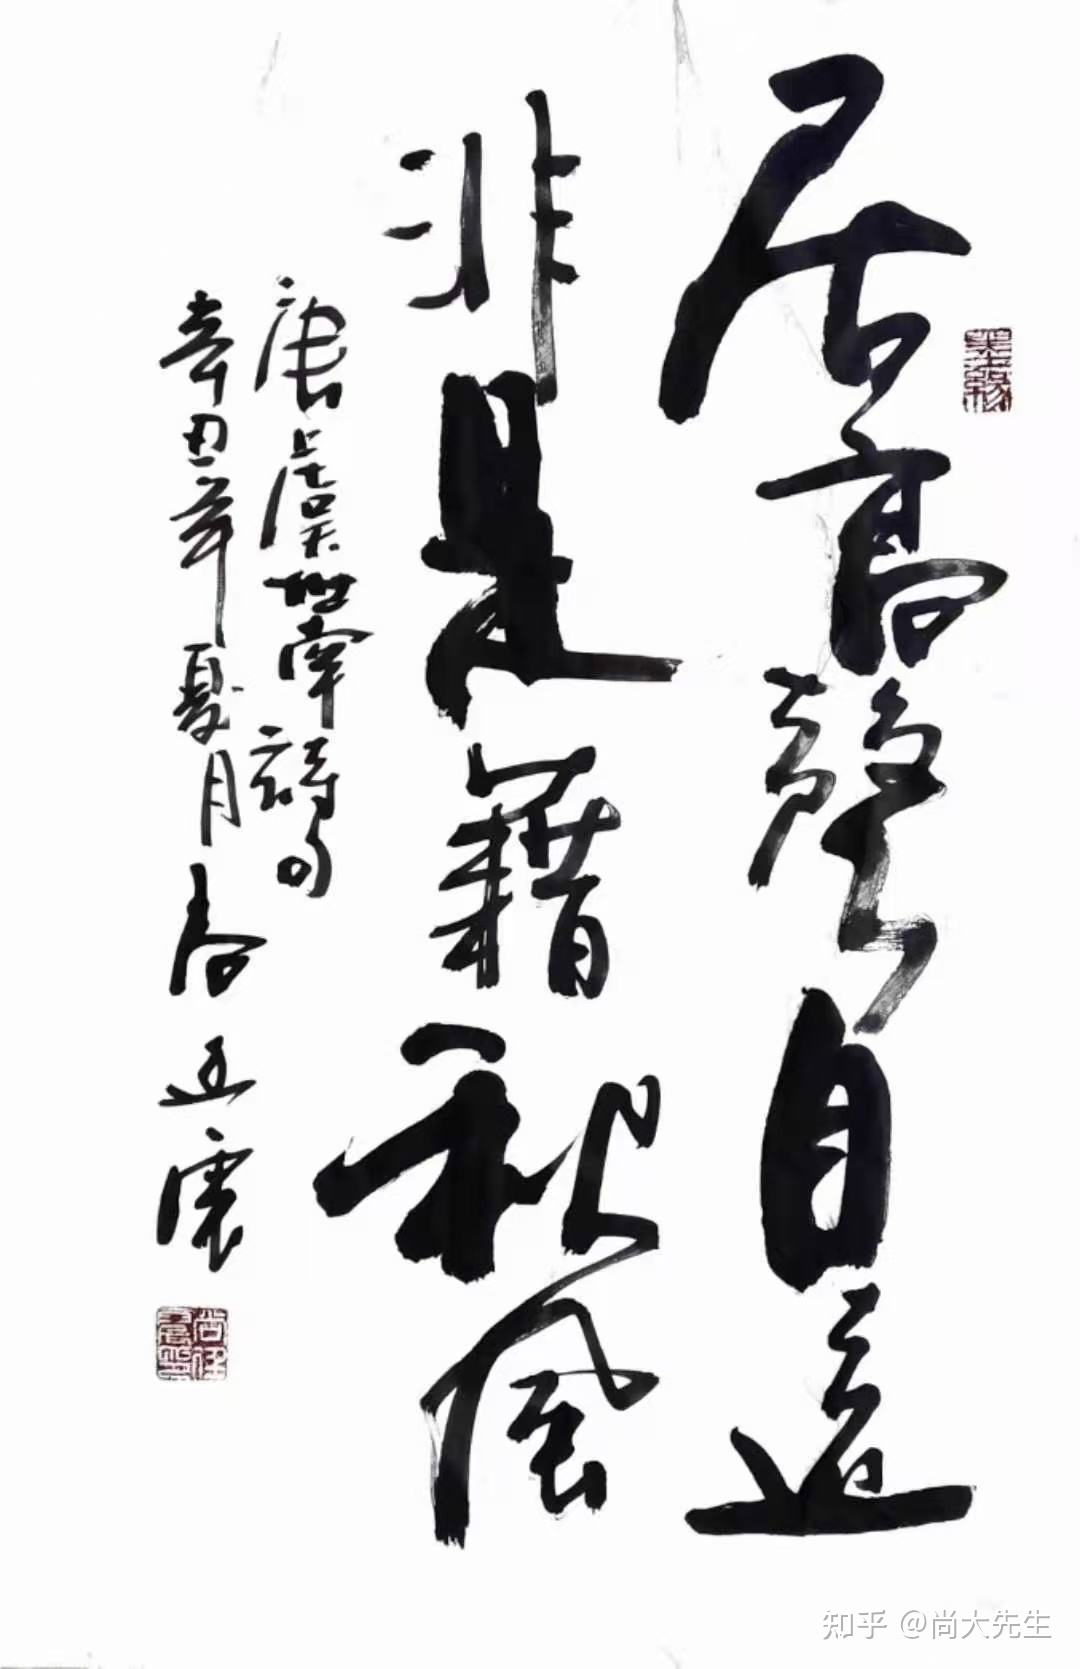 居高聲自遠
非是藉秋風
唐虞世南詩句
辛丑年夏月尚
知乎 @尚大先生